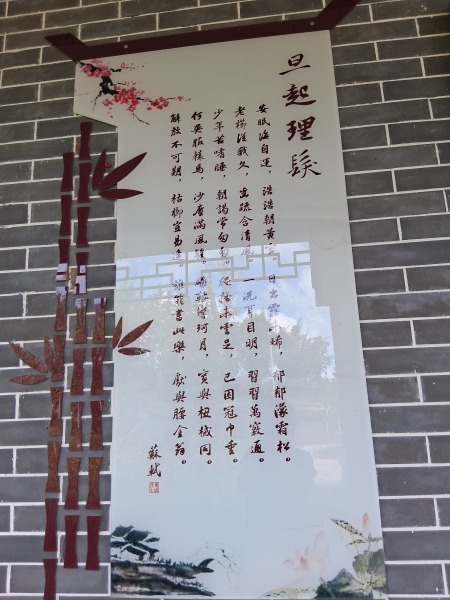 旦起理髮
安眠海自運，浩浩朝黃宮。日出露未晞，郁郁濛霜松。
老櫛從我久，齒疏含清風。一洗耳目明，習習萬竅通。
少年苦嗜睡，朝謁常匆匆。爬搔未雲足，已困冠巾重。
何異服轅馬，沙塵滿風鬃。雕鞍響珂月，實與杻械同。
解放不可期，枯柳豈易逢。誰能書此樂，獻與腰金翁。
蘇軾